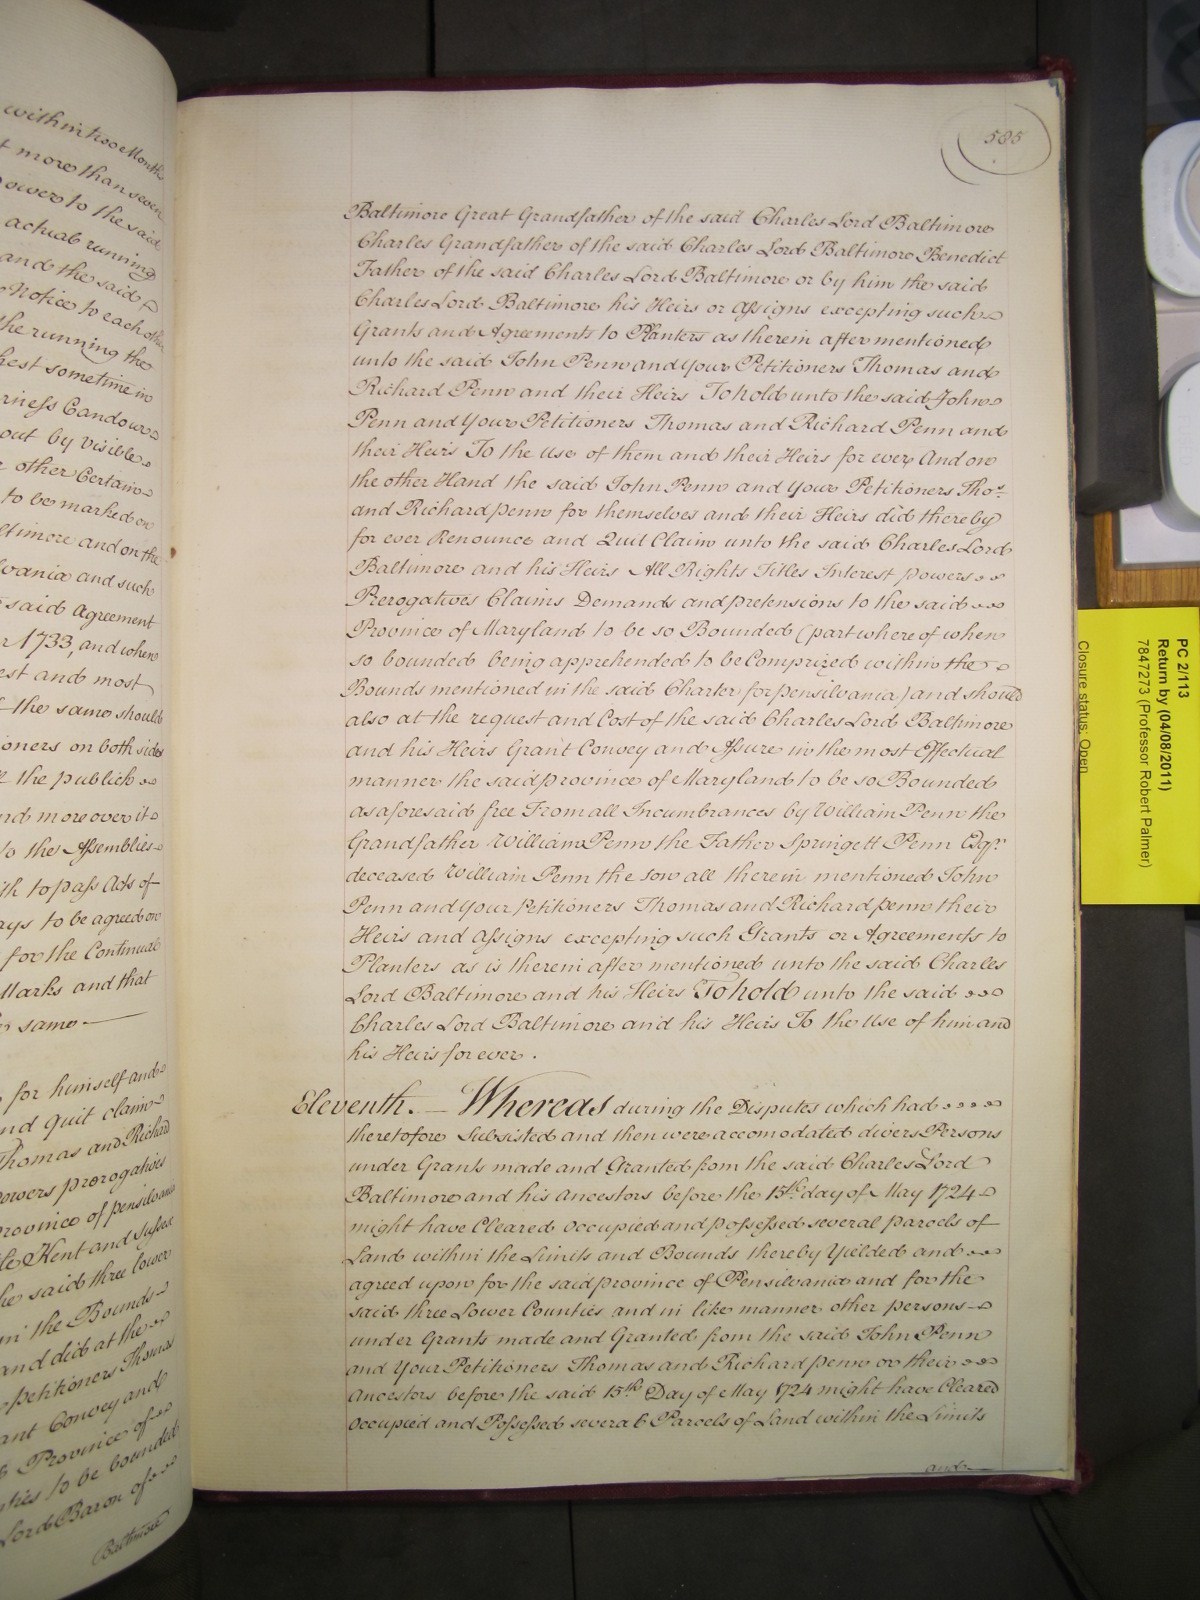 within two Months
t more than seven
owers to the said
actual running
and the said
Notice to each other
the running the
hest sometime in
rness Candour
out by visible
r other Certain
to be marked on
ltimore and on the
lvania and such
said Agreement
r 1733, and when
est and most
the same should
ioners on both sides
the publick
nd moreover it
to the Assemblies
ith to pass Acts of
ays to be agreed on
for the Continual
Marks and that
same
for himself and
nd quit claim
Thomas and Richard
owers prerogatives
rovince of pensilvania
le Kent and Sussex
he said three lower
in the Bounds
and did at the
petitioners Thomas
ant Convey and
Province of
nties to be bounded
Lord Baron of
Baltimore
585
Baltimore Great Grandfather of the said Charles Lord Baltimore
Charles Grandfather of the said Charles Lord Baltimore Benedict
Father of the said Charles Lord Baltimore or by him the said
Charles Lord Baltimore his Heirs or Assigns excepting such
Grants and Agreements to Planters as therein after mentioned
unto the said John Penn and Your Petitioners Thomas and
Richard Penn and their Heirs To hold unto the said John
Penn and Your Petitioners Thomas and Richard Penn and
their Heirs To the Use of them and their Heirs for ever And on
the other Hand the said John Penn and Your Petitioners Thos.
and Richard penn for themselves and their Heirs did thereby
for ever Renounce and Quit Claim unto the said Charles Lord
Baltimore and his Heirs All Rights Titles Interest powers
Prerogatives Claims Demands and pretensions to the said
Province of Maryland to be so Bounded (part where of when
so bounded being apprehended to be Comprized within the
Bounds mentioned in the said Charter for pensilvania) and should
also at the request and Cost of the said Charles Lord Baltimore
and his Heirs Grant Convey and Assure in the most Effectual
manner the said province of Maryland to be so Bounded
as aforesaid free From all Incumbrances by William Penn the
Grandfather William Penn the Father Springett Penn Esqr.
deceased William Penn the son all therein mentioned John
Penn and your Petitioners Thomas and Richard penn their
Heirs and Assigns excepting such Grants or Agreements to
Planters as is therein after mentioned unto the said Charles
Lord Baltimore and his Heirs To hold unto the said
Charles Lord Baltimore and his Heirs To the Use of him and
his Heirs for ever.
Eleventh. — Whereas during the Disputes which had
theretofore Subsisted and then were accomodated divers Persons
under Grants made and Granted from the said Charles Lord
Baltimore and his Ancestors before the 15th day of May 1724
might have Cleared Occupied and possessed several parcels of
Land within the Limits and Bounds thereby Yielded and
agreed upon for the said province of Pensilvania and for the
said three Lower Counties and in like manner other persons
under Grants made and Granted from the said John Penn
and Your Petitioners Thomas and Richard penn or their
Ancestors before the said 15th Day of May 1724 might have Cleared
Occupied and Possessed several Parcels of Land within the Limits
and
PC 2/113
Return by (04/08/2011)
7847273 (Professor Robert Palmer)
Closure status: Open